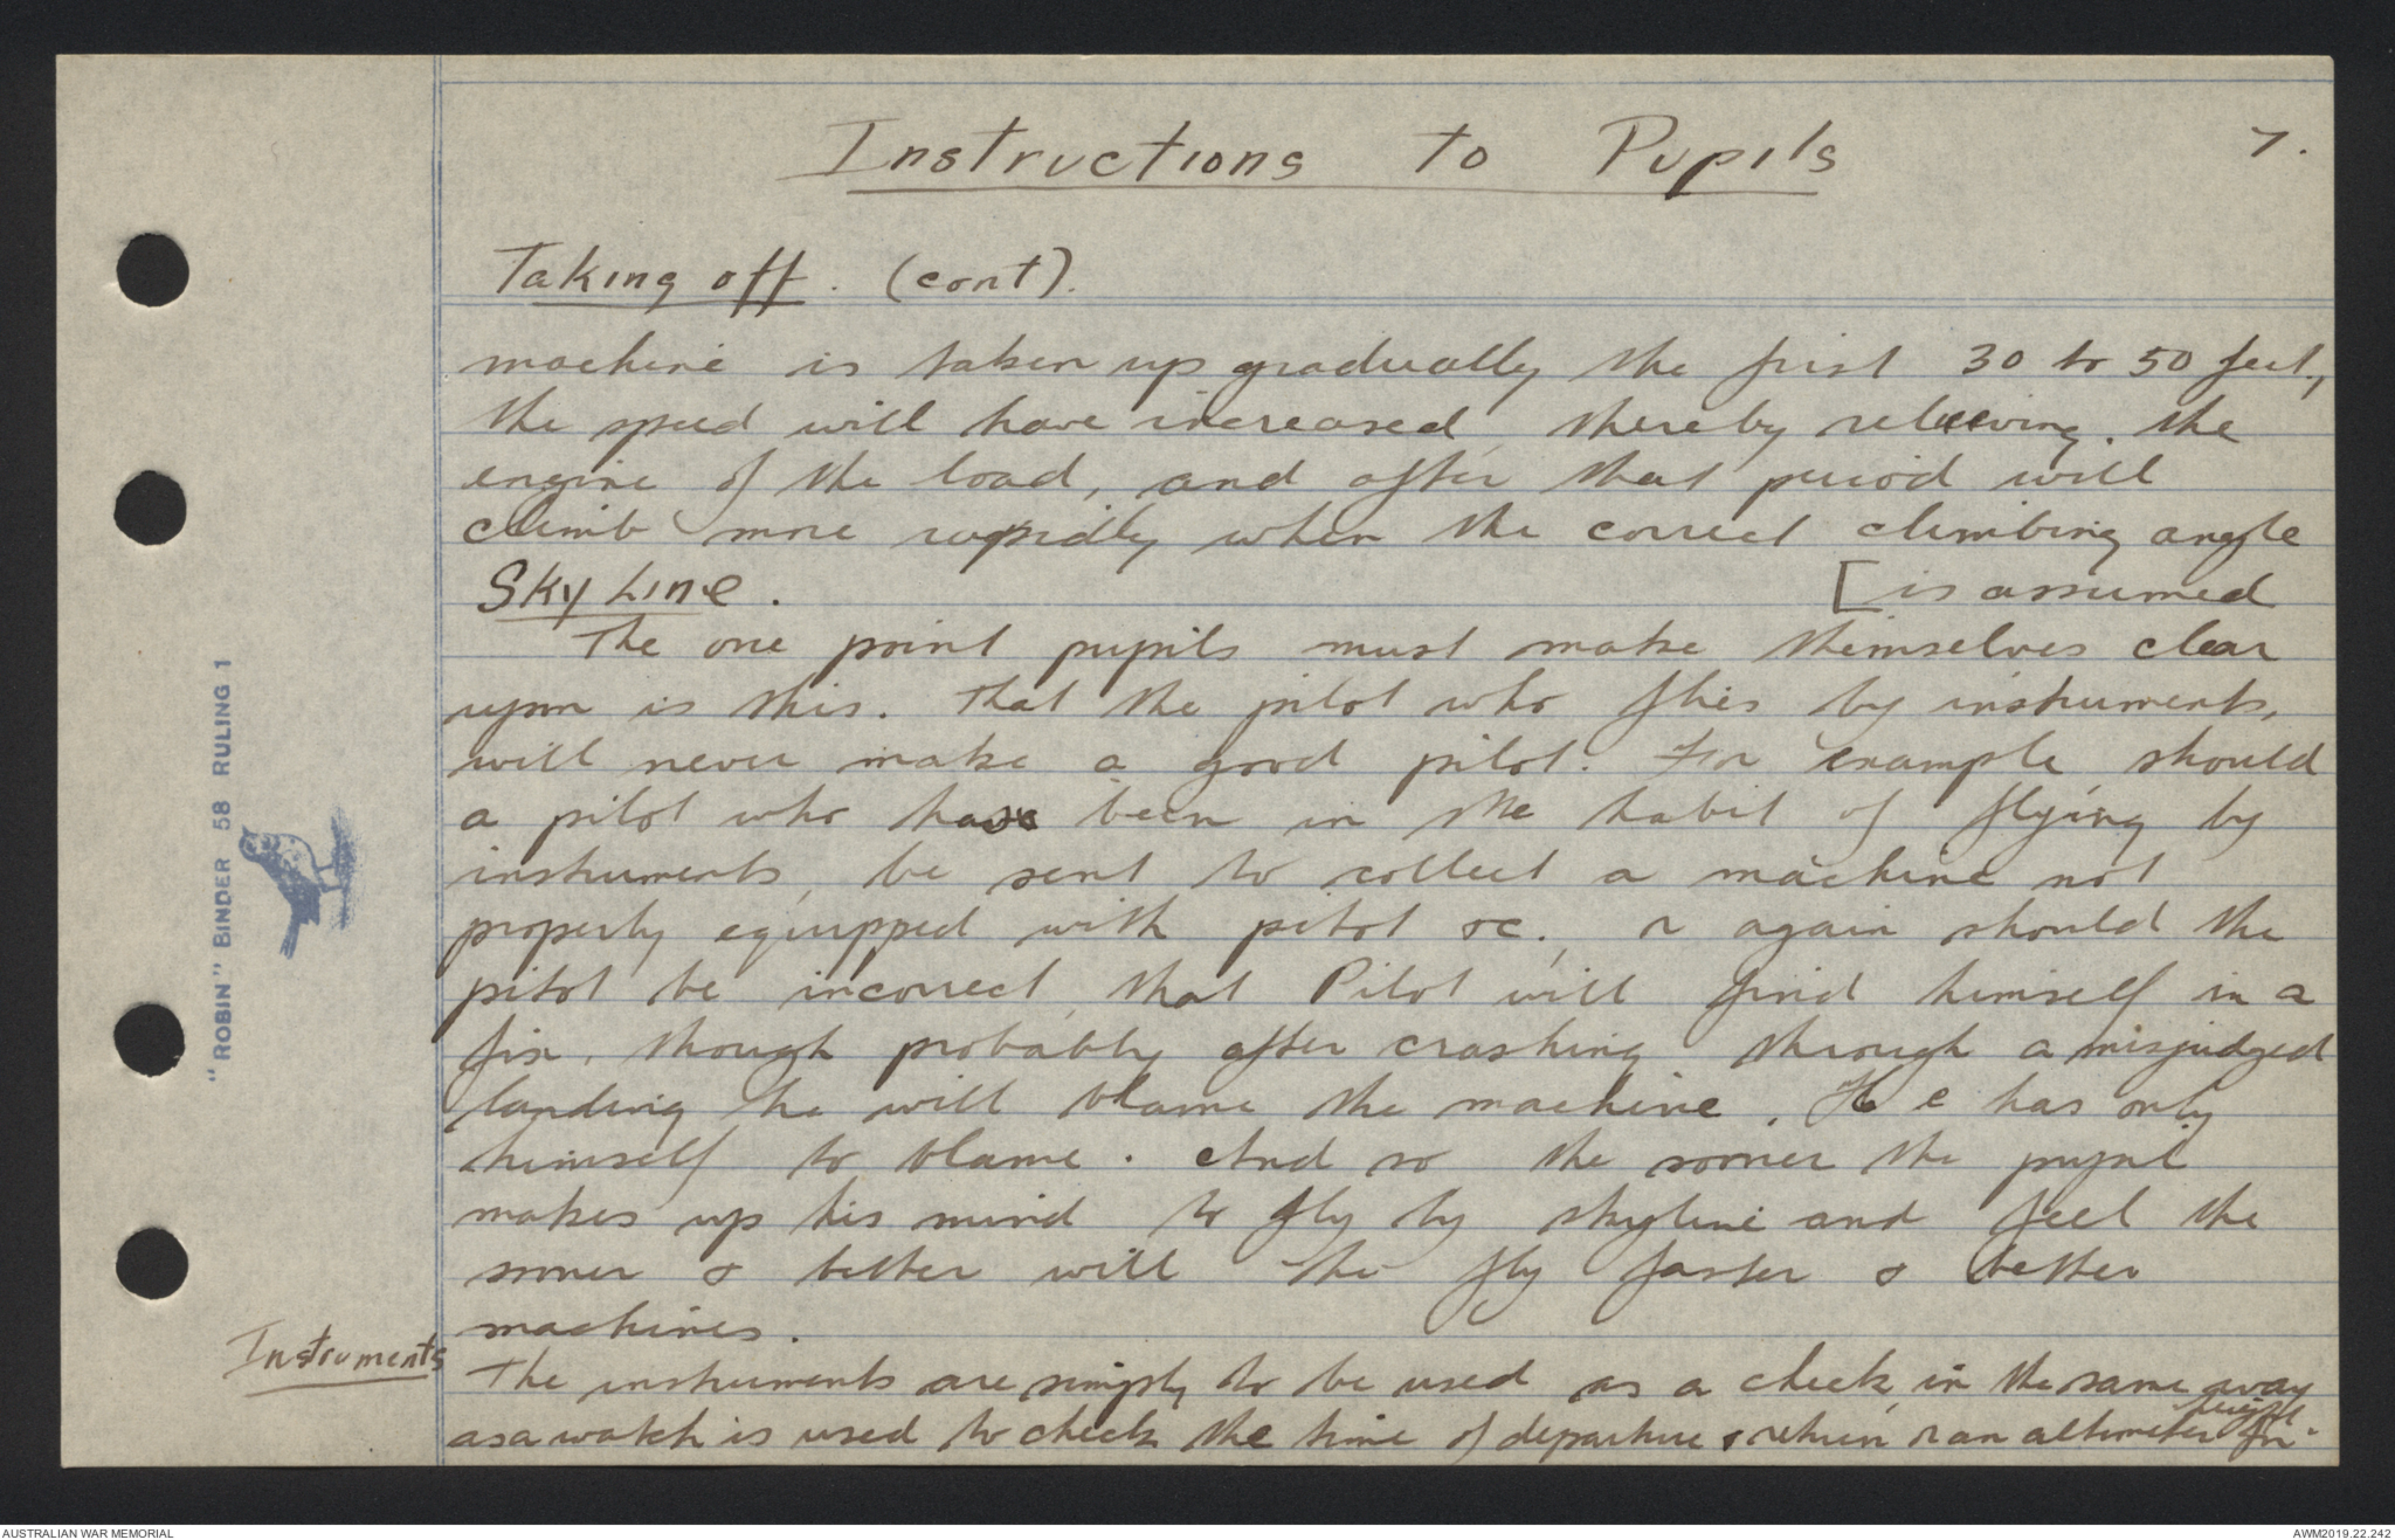 Instructions to Pupils 7.
Taking off. (cont).
machine is taken up gradually the first 30 to 50 feet,
the speed will have increased, thereby relieving the
engine of the load, and after that period will
climb more rapidly when the correct climbing angle
[is assumed
Sky Line.
The one point pupils must make themselves clear
upon is this. That the pilot who flies by instruments,
will never make a good pilot. For example should
a pilot who has been in the habit of flying by
instruments, be sent to collect a machine not
properly equipped with pitot &c., or again should the
pitot be incorrect, that Pilot will find himself in a
fix, though probably after crashing through a misjudged
landing he will blame the machine. He has only
himself to blame. And so the sooner the pupil
makes up his mind to fly by skyline and feel the
sooner & better will he fly faster & better
machines.
Instruments
The instruments are simply to be used as a check, in the same way
as a watch is used to check the time of departure & return or an altimeter for height.
"ROBIN" BINDER 58 RULING 1
AUSTRALIAN WAR MEMORIAL
AWM2019.22.242